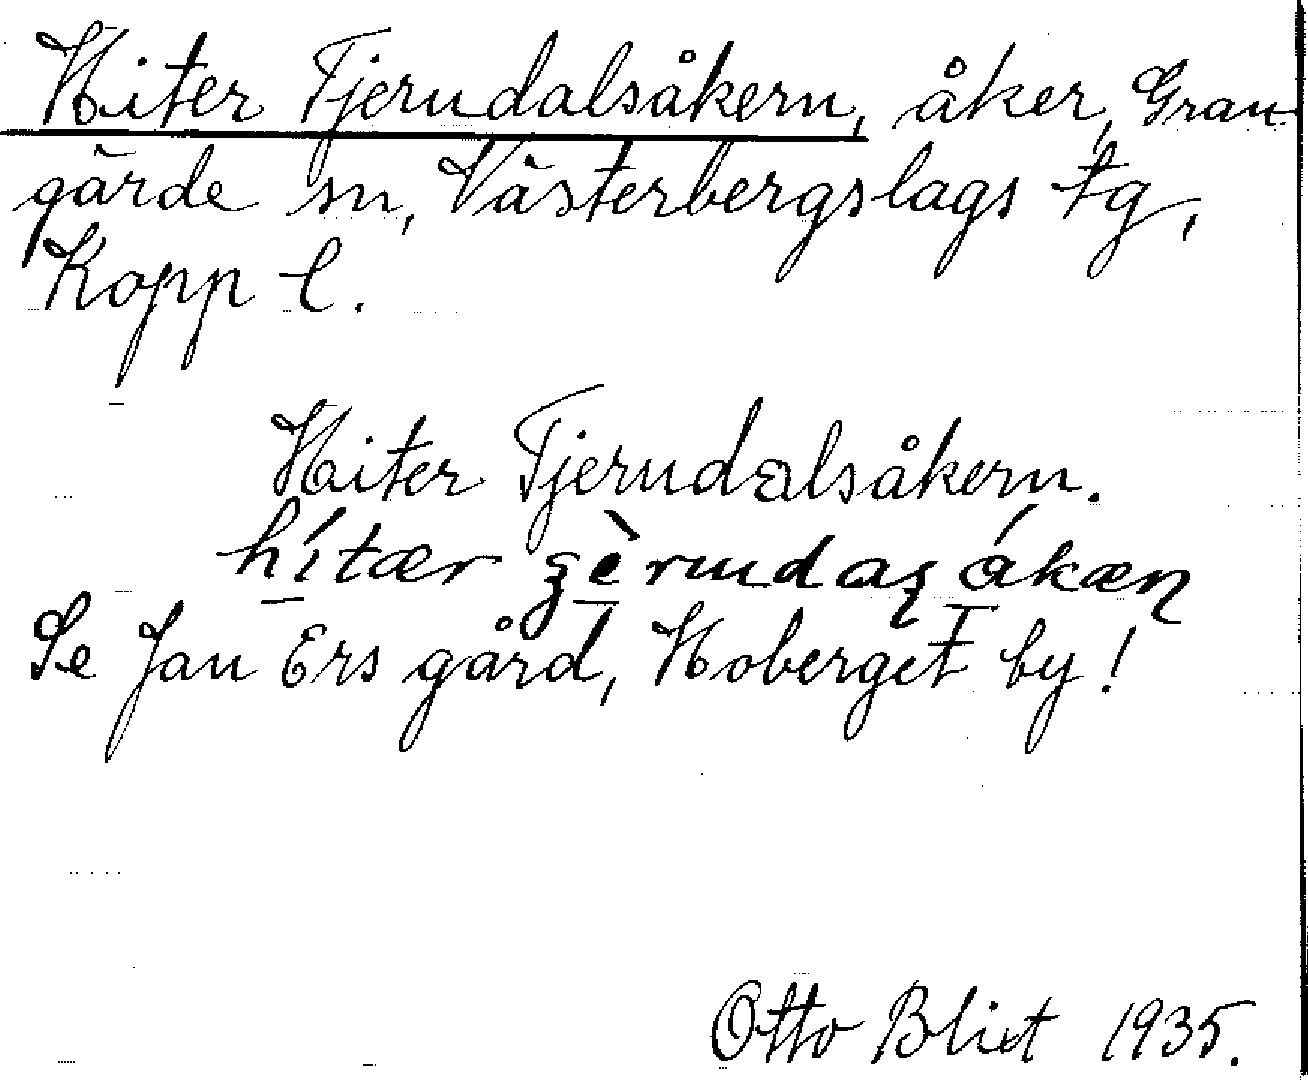 Hiter Tjerndalsåkern, åker, Gran-
gärde sn, Västerbergslags tg,
Kopp l.
Hiter Tjerndalsåkern.
hítær
Se Jan Ers gård, Hoberget by!
Otto Blixt 1935.